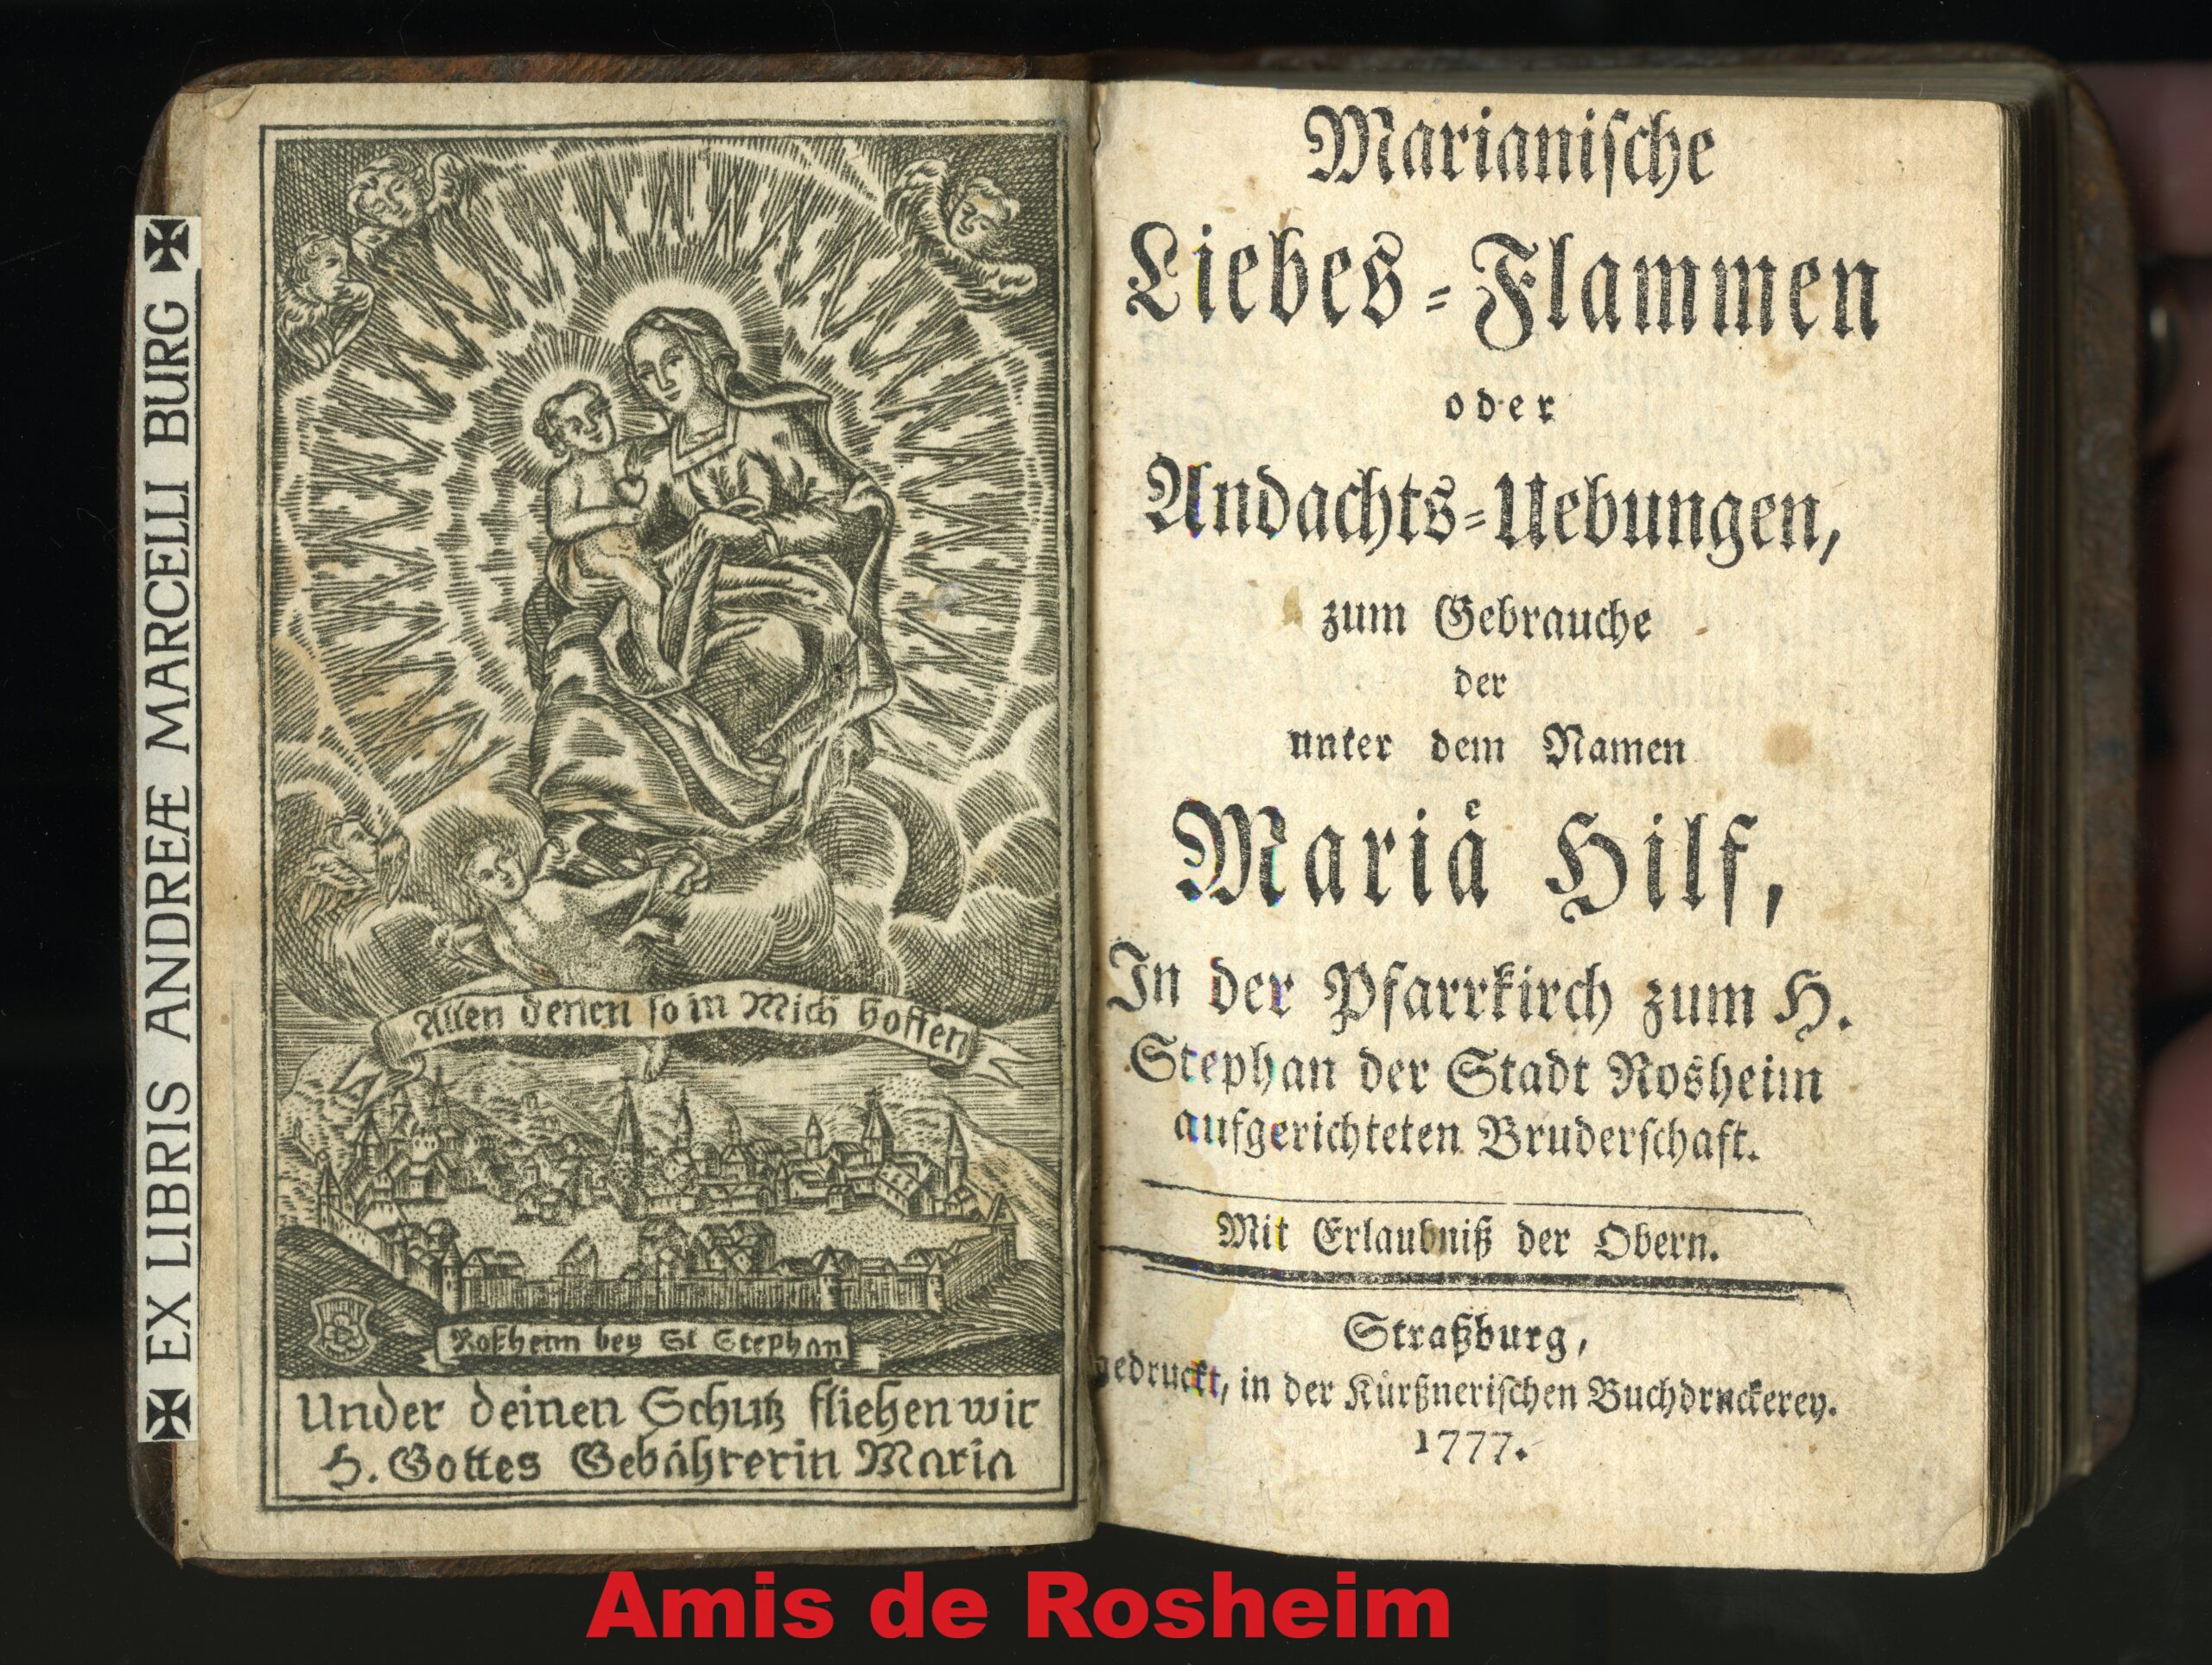 ✠ EX LIBRIS ANDREÆ MARCELLI BURG ✠
Allen denen so in Mich hoffen
Roßheim bey St Stephan
Under deinen Schutz fliehen wir
H. Gottes Gebährerin Maria
Marianiſche
Liebes-Flammen
oder
Andachts-Uebungen,
zum Gebrauche
der
unter dem Namen
Mariaͤ Hilf,
In der Pfarrkirch zum H.
Stephan der Stadt Rosheim
aufgerichteten Bruderſchaft.
Mit Erlaubniß der Obern.
Straßburg,
gedruckt, in der Kürßneriſchen Buchdruckerey.
1777.
Amis de Rosheim